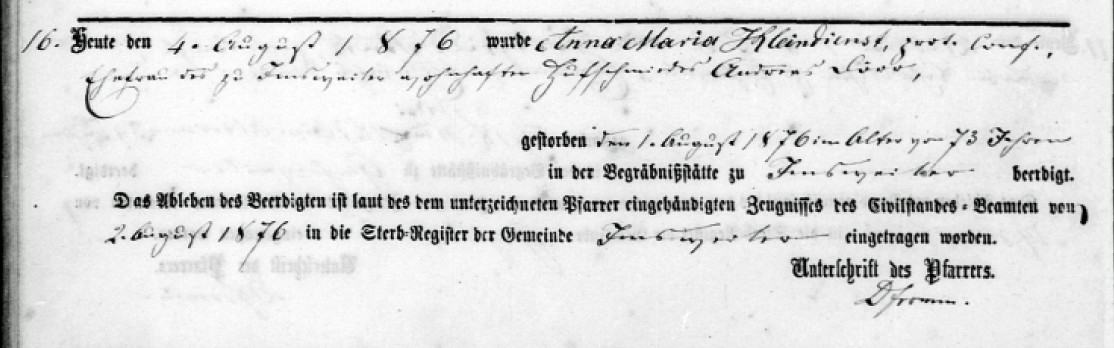 16. Heute den 4. August 1876 wurde Anna Maria Kleindienst, prot. Conf.
Ehefrau des zu Imsweiler wohnhaften Hufschmiedes Andreas
gestorben den 1. August 1876 im Alter von 73 Jahren
in der Begräbnißstätte zu Imsweiler beerdigt.
Das Ableben des Beerdigten ist laut des dem unterzeichneten Pfarrer eingehändigten Zeugnisses des Civilstandes-Beamten von
2. August 1876 in die Sterb-Register der Gemeinde Imsweiler eingetragen worden.
Unterschrift des Pfarrers.